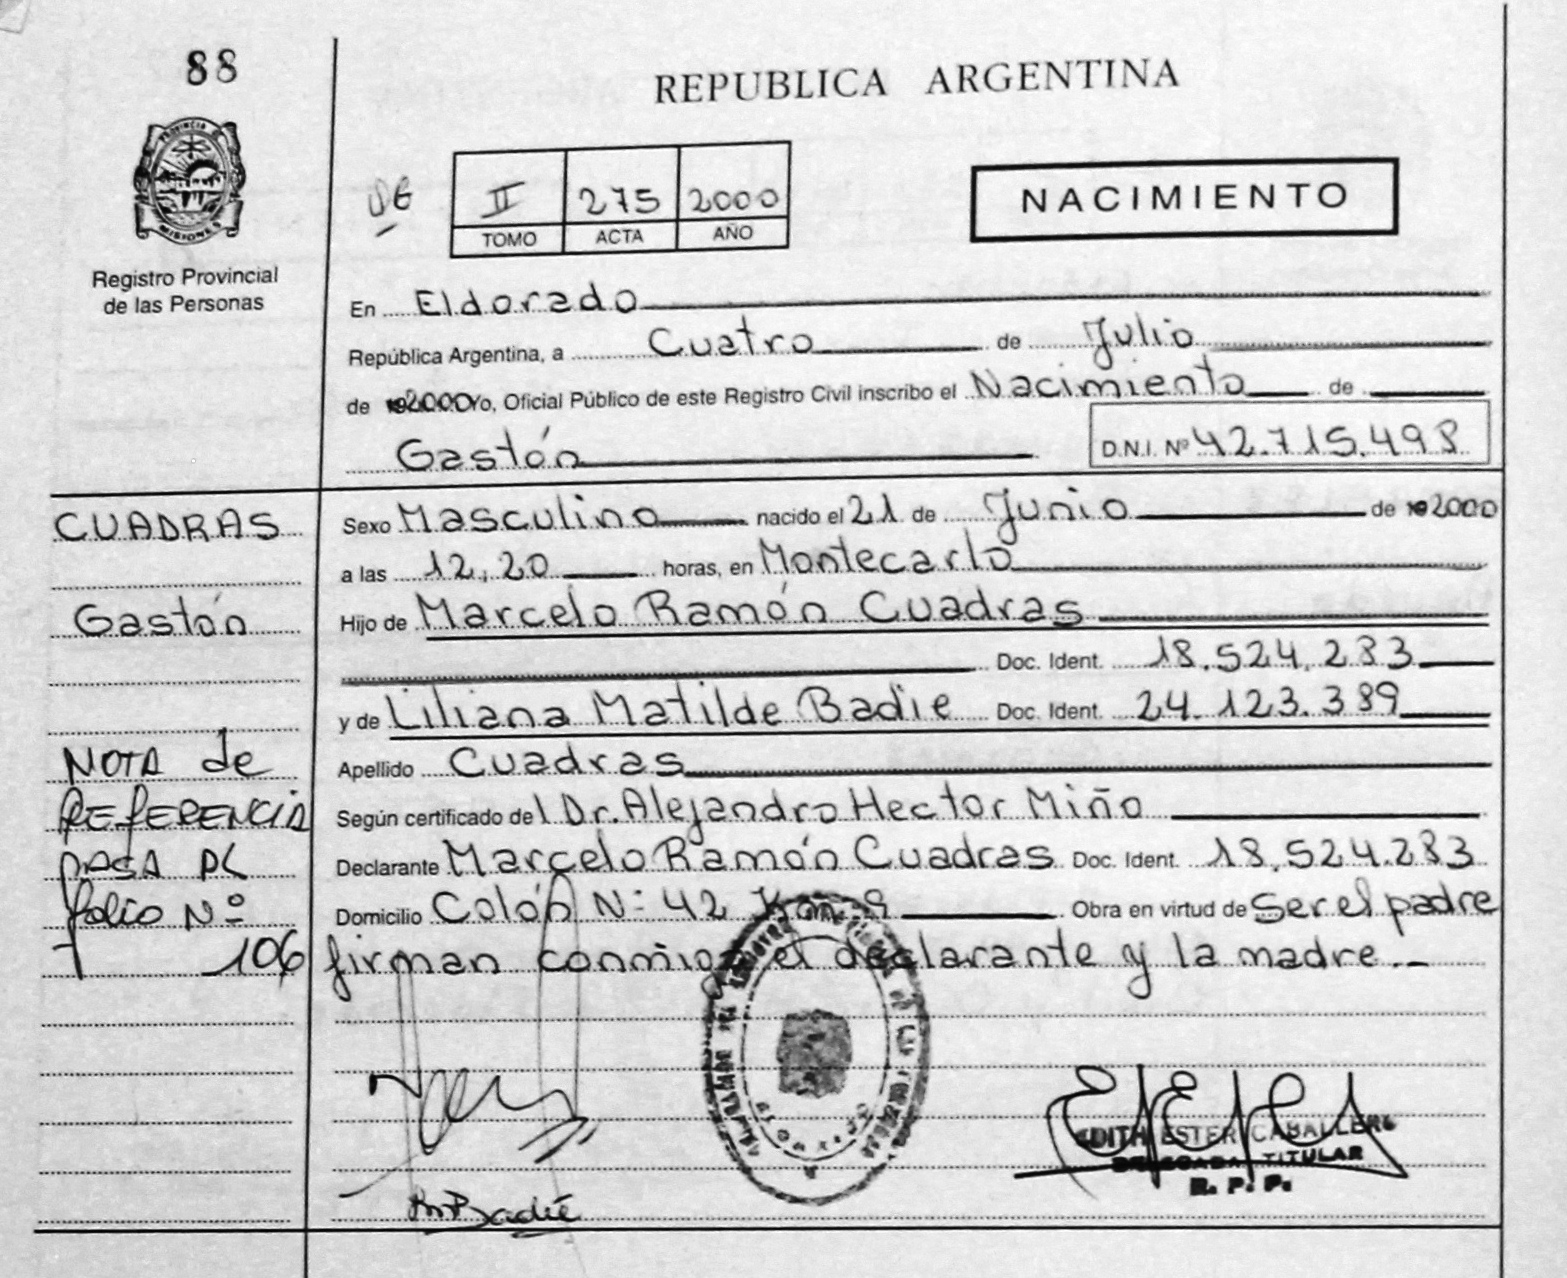 88
REPUBLICA ARGENTINA
PROVINCIA DE
MISIONES
II 275 2000
TOMO ACTA AÑO
NACIMIENTO
Registro Provincial
de las Personas
En Eldorado
República Argentina, a Cuatro de Julio
de 2000 Yo, Oficial Público de este Registro Civil inscribo el Nacimiento de
Gastón D.N.I. Nº 42.715.498
CUADRAS
Sexo Masculino nacido el 21 de Junio de 2000
a las 12,20 horas, en Montecarlo
Gastón
Hijo de Marcelo Ramón Cuadras
Doc. Ident. 18.524.283
y de Liliana Matilde Badie Doc. Ident. 24.123.389
NOTA de
Apellido Cuadras
REFERENCIA
Según certificado del Dr. Alejandro Hector Miño
PASA AL
Declarante Marcelo Ramón Cuadras Doc. Ident. 18.524.283
folio Nº
Domicilio Colón N: 42 Km. 9 Obra en virtud de Ser el padre
106
firman conmigo el declarante y la madre.-
EDITH ESTER CABALLERO
DELEGADA TITULAR
R. P. P.
Badié